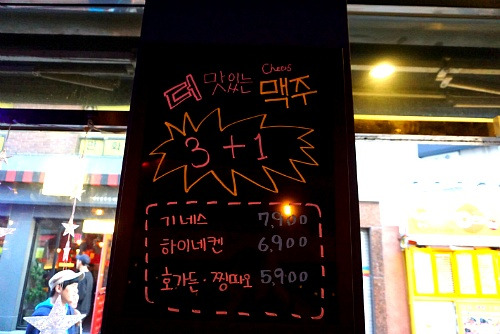 Cheers
더 맛있는 맥주
3+1
기네스 7,900
하이네켄 6,900
호가든·찡따오 5,900